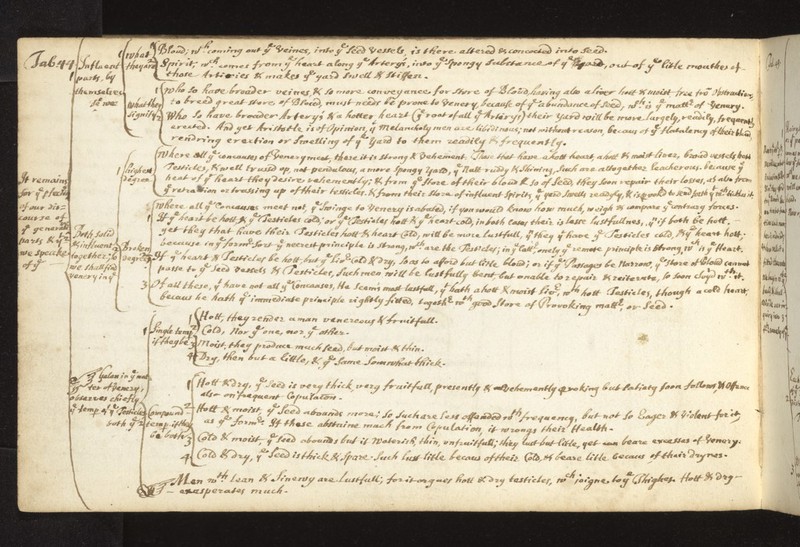 Tab: 44
It remains
for yͤ
of our dis-
course of
yͤ generall
parts & yͭ
we speake
of yͤ
Influent
parts, by
themselves
what
they are
Bloud, wᶜʰ coming out yͤ Veines, into yͤ Seed Vessels, is there altered & concocted into Seed.
Spirit, wᶜʰ comes from yͤ heart along yͤ Arterys, into yͤ Spongy Substance of yͤ Yard, out of yͤ litle mouthes of
those Arteries & makes yͤ yard Swell & Stiffen.
what they
signify
1 Who so have broader veines, & so more conveyance for Store of Bloud, having also a liver hott & moist free frō Obstruction,
to breed great store of Bloud, must needs be prone to Venery, because of yͤ abundance of Seed, wᶜʰ is yͤ mattͬ of Venery.
2 Who So have broader Arterys & a hotter heart (yͤ root of all yͤ Arterys) their yard will be more largely, readily, & frequently
erected. And yet Aristotle is of Opinion, yͭ Melancholy men are libidinous; not without reason, becaus of yͤ flatulency of their bloud
rendring erection or Swelling of yͤ Yard to them readily & frequently.
Both Solid
& influent
together; So
we shall find
Venery in yͤ
1 highest
degree.
Where all yͤ concauses of Venery meet, there it is strong & Vehement. Thus that have a hott heart, a hot & moist liver, broad vessels, hott
Testicles, & well trussed up, not pendulous, a more Spongy Yard, yͤ Nutt ruddy & Shining, Such are altogether lecherous: because yͤ
heat of yͤ heart they desire vehemently; & from yͤ Store of their bloud & so of Seed they soon repair their losses, as also from
yͤ retraction or trussing up of their testicles & from their Store of influent Spirits, yͤ yard Swells readily,
2 Broken
degrees
Where all yͤ Concauses meet not, yͤ Swinge to Venery is abated, if you would know how much, weigh & compare yͤ contrary forces.
1 If yͤ heart be hott & yͤ Testicles cold, or yͤ Testicles hott & yͤ heart cold, in both cases their is less lustfullnes, yͭ if both be hott,
yet they that have their Testicles hott & heart Cold, will be more lustfull, yͭ they yͭ have yͤ Testicles cold, & yͤ heart hott:
because in yͤ formͬ Sort yͤ neerest principle is Strong, wᶜʰ are the Testicles; in yͤ latt. onely yͤ remote principle is Strong, wᶜʰ is yͤ heart.
2 If yͤ heart & Testicles be hott, but yͤ livͬ Cold & dry, So as to afford but litle bloud; or if yͤ Passages be Narrow, yͭ Store of bloud cannot
passe to yͤ Seed Vessels & Testicles, Such men will be lustfully bent but unable to repair & reiterate, so soon cloy'd wᵗʰ it.
3 Of all these, yͭ have not all yͤ Concauses, He Seems most lustfull, yͭ hath a hott & moist livͬ, wᵗʰ hott Testicles, though a cold heart,
becaus he hath yͤ immediate principle rightly fitted, togethͬ wᵗʰ good Store of Provoking mattͬ, or Seed.
Galen in yͤ mat-
ter of Venery,
observes chiefly
yͤ temp. of yͤ Testicles
both yͤ
1 Single temp.
if they be
1 Hott, they render a man venereous & fruitfull.
2 Cold, Nor yͤ one, nor yͤ other.
3 Moist, they produce much Seed, but moist & thin.
4 Dry, then but a little, & yͤ Same Somewhat thick.
2 Compound
temp. if they
be both
1 Hott & dry, yͤ Seed is very thick, very fruitfull, presently & vehemently provoking but Satiety soon follows, & Offence
also on frequent Copulation.
2 Hott & moist, yͤ Seed abounds more; So Such are less offended wᵗʰ frequency, but not So Eager & Violent for it,
as yͤ formͬ. If these abstaine much from Copulation, it wrongs their Health.
3 Cold & moist, yͤ Seed abounds but is Waterish, thin, unfruitfull; they lust but litle, yet can beare excesses of Venery.
4 Cold & dry, yͤ Seed is thick & Spare. Such lust litle becaus of their Cold, & beare litle becaus of their drynes.
Men wᵗʰ lean & Sinewy are lustfull; for it argues hott & dry testicles, wᶜʰ joigne to yͤ Thighes. Hott & dry
exasperates much.